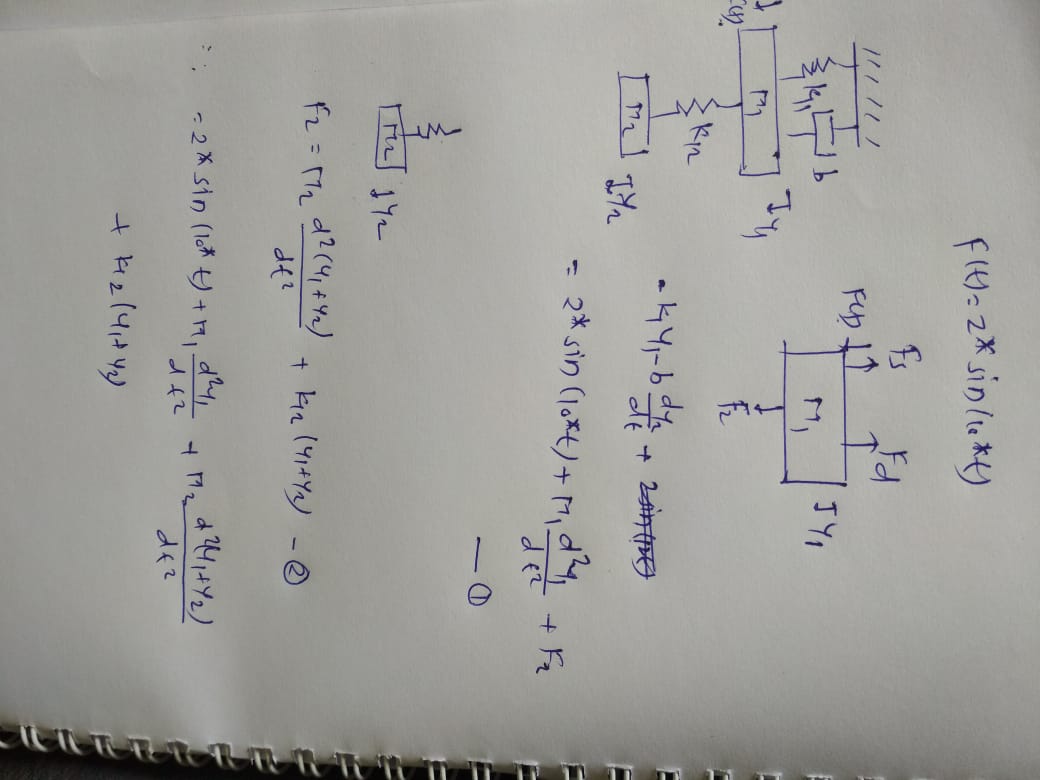 F(t) = 2* sin(10*t)
Fs
Fd
F(t)
M1
y1
F2
k1
b
M1
y1
F(t)
K12
M2
y2
- k1 y1 - b dy2/dt + 
= 2* sin(10*t) + M1 d²y1/dt² + F2
— ①
M2
y2
F2 = M2 d²(y1+y2)/dt² + k12 (y1+y2) - ②
∴ = 2* sin(10* t) + M1 d²y1/dt² + M2 d²(y1+y2)/dt²
+ k12(y1+y2)